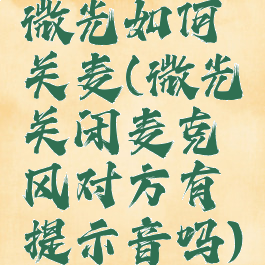 微光如何
关麦(微光
关闭麦克
风对方有
提示音吗)